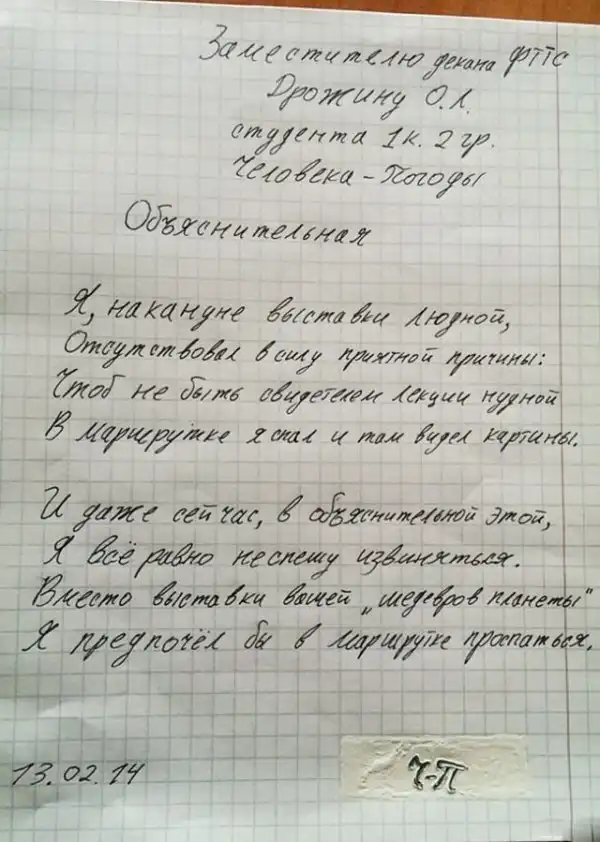 Заместителю декана ФТТС
Дрожину О.Л.
студента 1к. 2 гр.
Человека-Погоды
Объяснительная
Я, накануне выставки людной,
Отсутствовал в силу приятной причины:
Чтоб не быть свидетелем лекции нудной
В маршрутке я спал и там видел картины.
И даже сейчас, в объяснительной этой,
Я всё равно не спешу извиняться.
Вместо выставки вашей „шедевров планеты"
Я предпочёл бы в маршрутке проспаться.
13.02.14
Ч-П